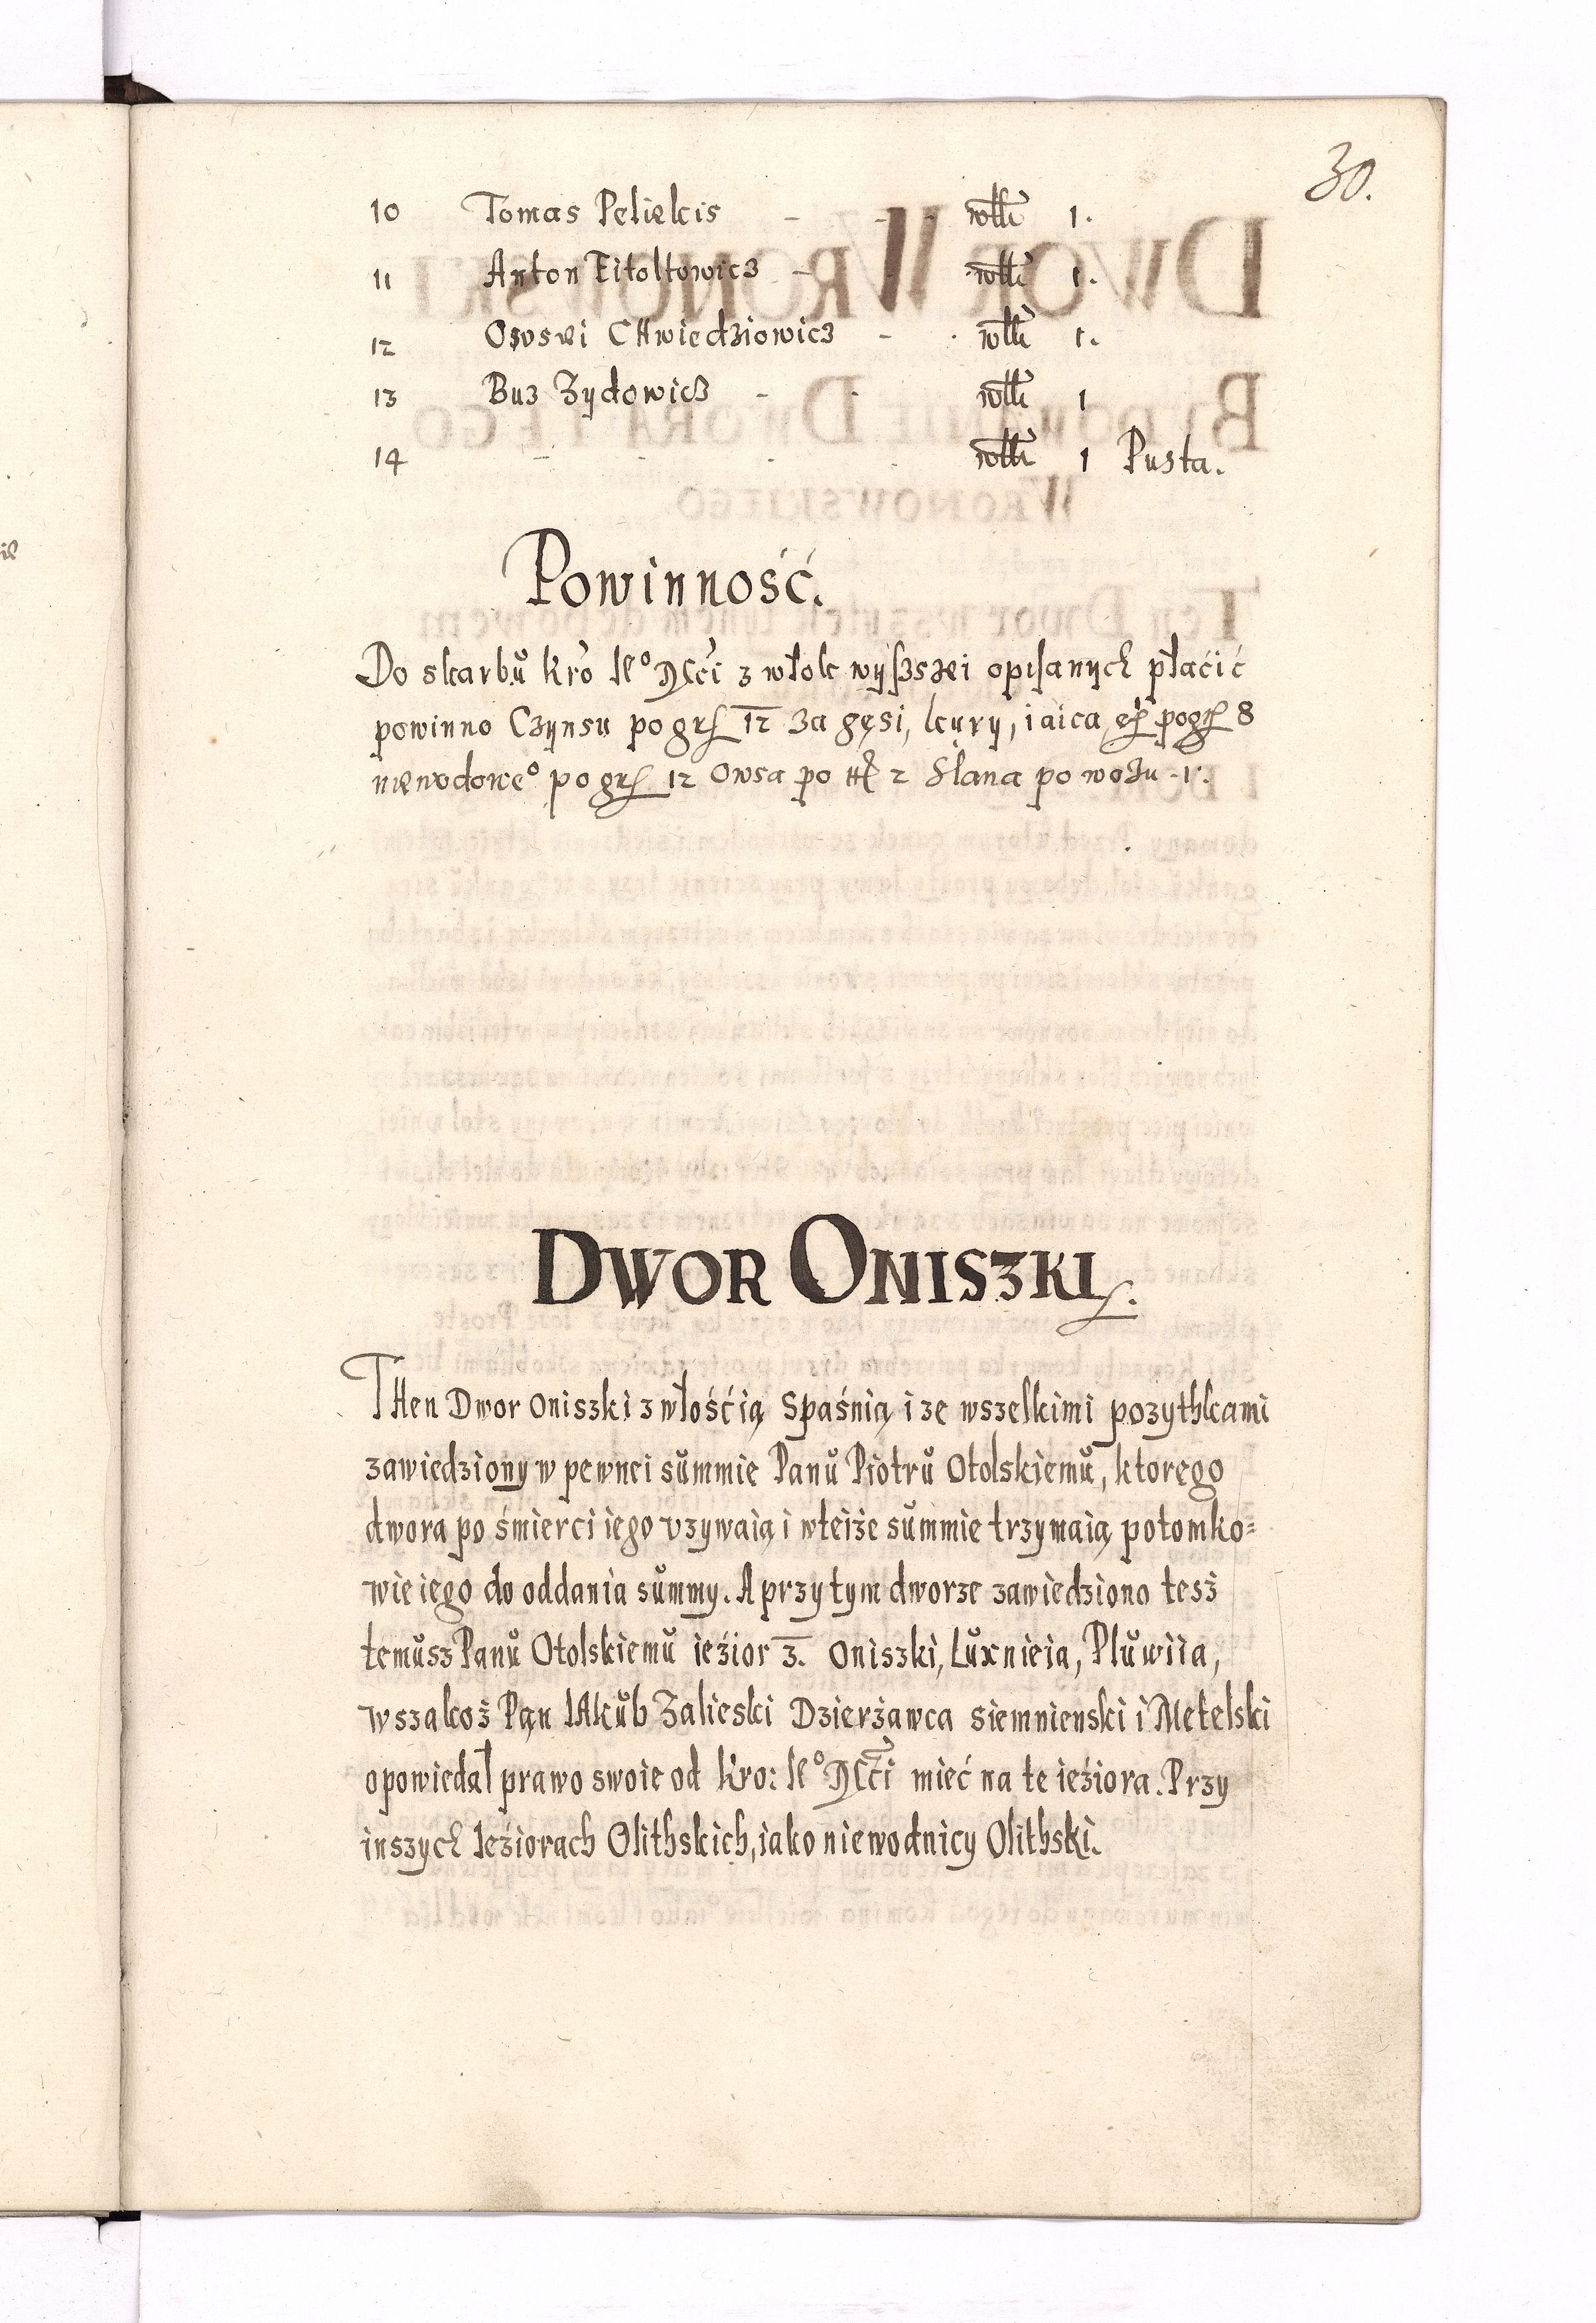 30.
10 Tomas Peliekis - - włki 1.
11 Anton Titoltowicz - - włki 1.
12 CHwiedziowicz - . włki 1.
13 Buz Zydowicz - - włki 1
14 - - - - włki 1 Pusta.
Powinność.
Do skarbu Kro Ie° Mći z włok wyszszei opisanych płaćić
powinno Czynsu po grς 12 Za gęsi, kury, iaica po grς 8
niewodowe° po grς 12 Owsa po 2 Siana po wozu .1.
DWOR ONISZKI.
THen Dwor Oniszki z włośćią Spaśnią i ze wszelkimi pozythkami
zawiedziony w pewnei summie Panu Piotru Otolskiemu, ktorego
dwora po śmierci iego vzywaią i wteiże summie trzymaią potomko=
wie iego do oddania summy. A przy tym dworze zawiedziono tesż
temusz Panu Otolskiemu ieźior 3. Oniszki, Luxnieia, Pluwiia,
wszakoż Pan IAkub Zalieski Dzierżawca Siemnienski i Metelski
opowiedał prawo swoie od Kro: Ie° Mći mieć na te ieźiora. Przy
inszych Ieźiorach Olithskich, iako niewodnicy Olithski.